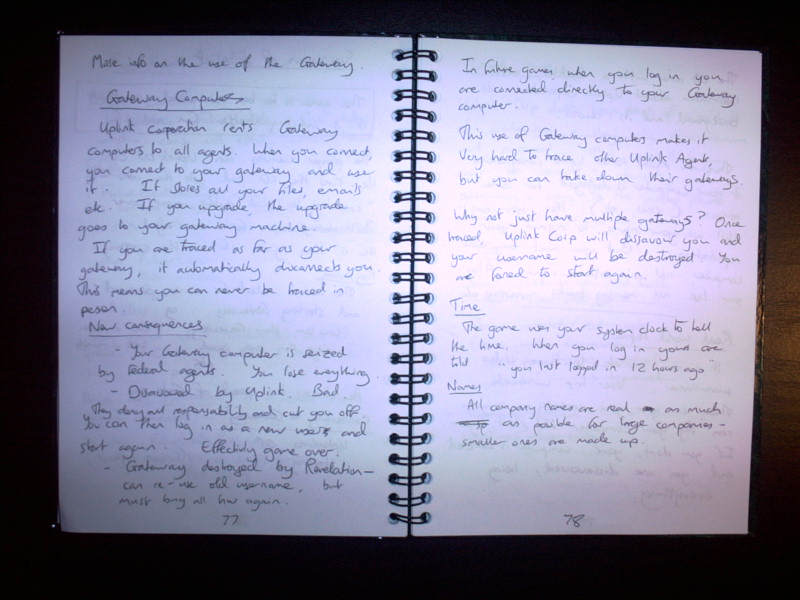 More info on the use of the Gateway.
Gateway Computers
Uplink corporation rents Gateway
computers to all agents. When you connect,
you connect to your gateway and use
it. It stores all your files, emails
etc. If you upgrade, the upgrade
goes to your gateway machine.
If you are traced as far as your
gateway, it automatically disconnects you.
This means you can never be traced in
person.
New consequences
- Your Gateway computer is seized
by Federal agents. You lose everything.
- Disavowed by Uplink. Bad.
They deny all responsibility and cut you off.
You can then log in as a new user and
start again. Effectively game over.
- Gateway destroyed by Revelation -
can re-use old username, but
must buy all h/w again.
77
In future games when you log in you
are connected directly to your Gateway
computer.
This use of Gateway computers makes it
very hard to trace other Uplink Agents,
but you can take down their gateways.
Why not just have multiple gateways? Once
traced, Uplink Corp will dissavow you and
your username will be destroyed. You
are forced to start again.
Time
The game uses your system clock to tell
the time. When you log in you are
told "you last logged in 12 hours ago"
Names
All company names are real as much
as posible for large companies -
smaller ones are made up.
78